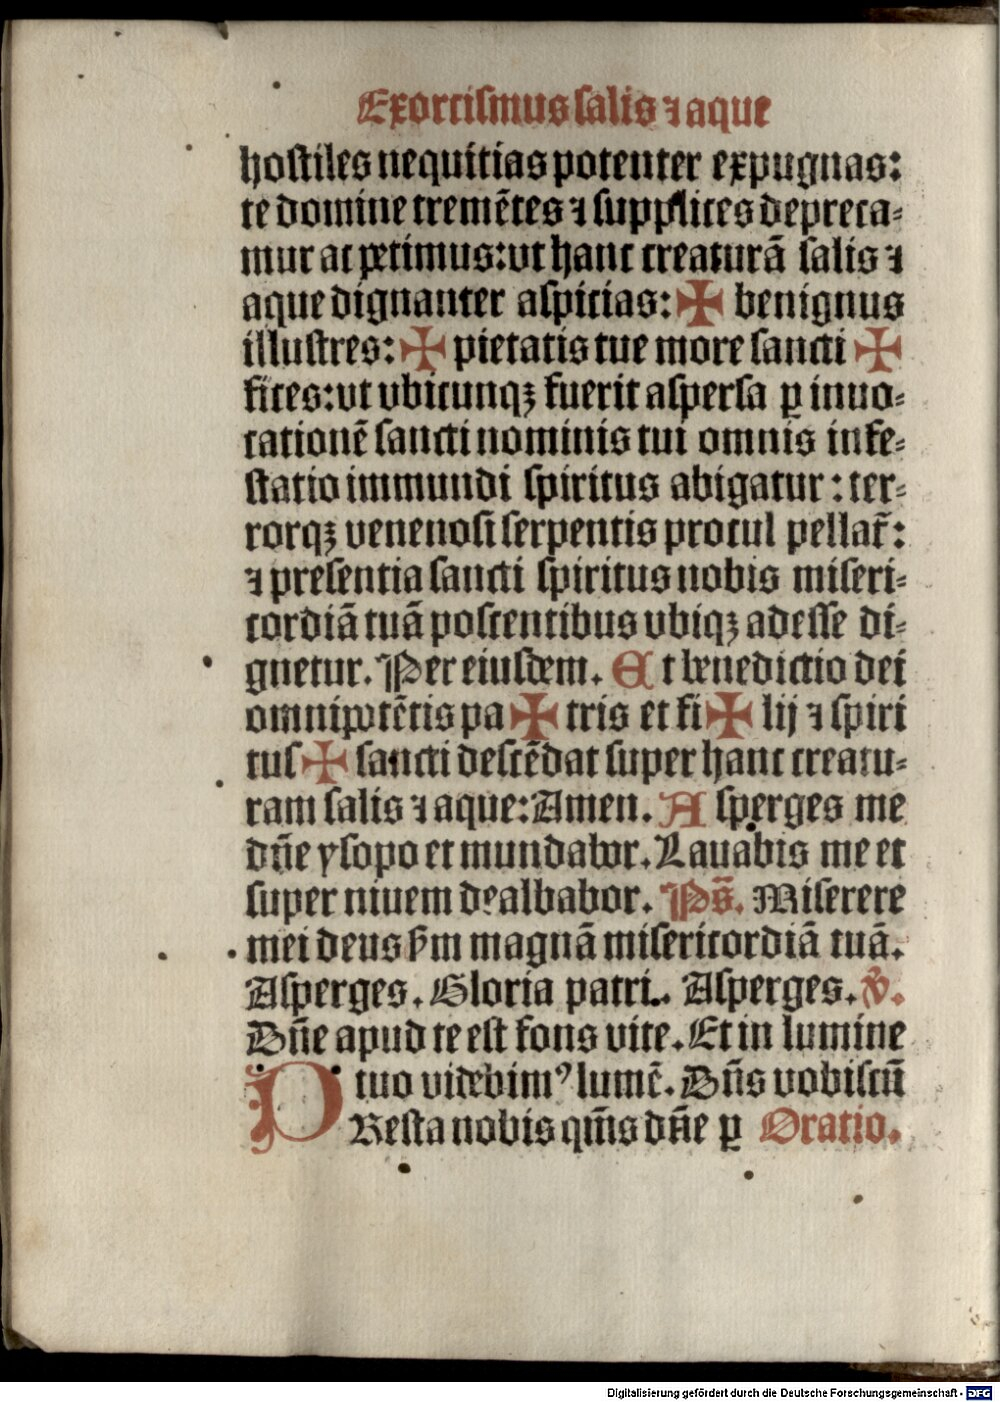 Exorcismus salis ⁊ aque
hostiles nequitias potenter expugnas:
te domine tremētes ⁊ supplices depreca⸗
mur ac petimus: vt hanc creaturā salis ⁊
aque dignanter aspicias: ✠ benignus
illustres: ✠ pietatis tue more sancti ✠
fices: vt vbicunqꝫ fuerit aspersa ꝑ inuo⸗
cationē sancti nominis tui omnis infe⸗
statio immundi spiritus abigatur: ter⸗
rorqꝫ venenosi serpentis procul pellat̄:
⁊ presentia sancti spiritus nobis miseri⸗
cordiā tuā poscentibus vbiqꝫ adesse di⸗
gnetur. Per eiusdem. Et benedictio dei
omnipotētis pa ✠ tris et fi ✠ lij ⁊ spiri
tus ✠ sancti descēdat super hanc creatu⸗
ram salis ⁊ aque: Amen. Asperges me
dn̄e ysopo et mundabor. Lauabis me et
super niuem dealbabor. Ps̄. Miserere
mei deus ẜm magnā misericordiā tuā.
Asperges. Gloria patri.. Asperges. v̄.
Dn̄e apud te est fons vite. Et in lumine
tuo videbimꝰ lumē. Dn̄s vobiscū
Resta nobis qm̄s dn̄e ꝑ Oratio.
P
Digitalisierung gefördert durch die Deutsche Forschungsgemeinschaft - DFG